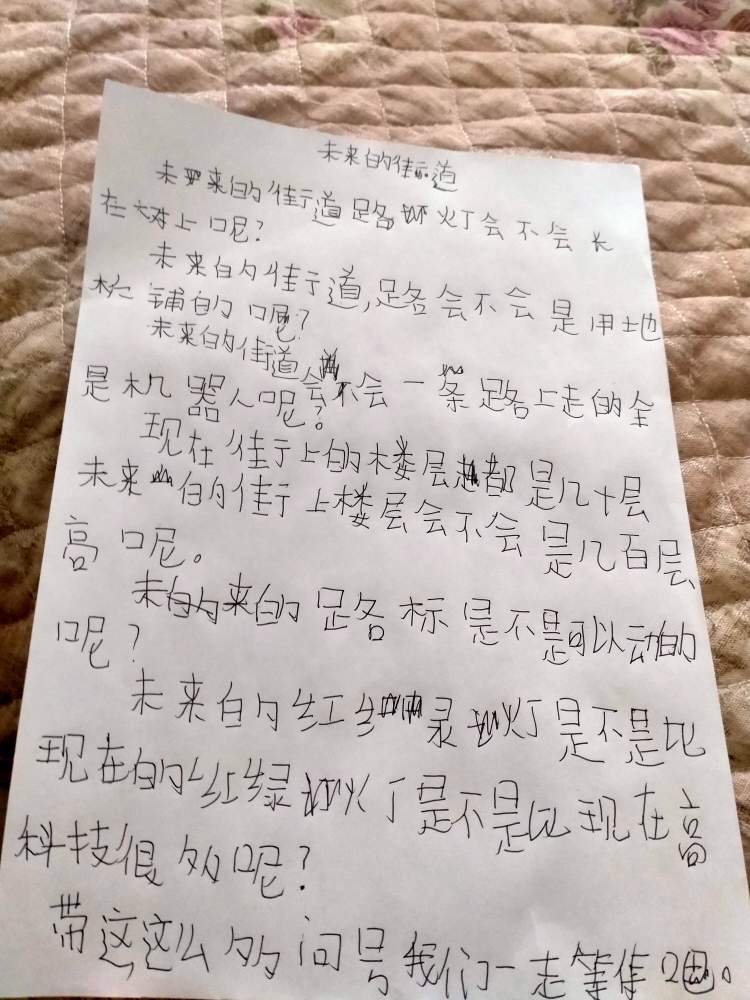 未来的街道
未来的街道路灯会不会长
在树上呢？
未来的街道,路会不会是用地
板铺的呢？
未来的街道会不会一条路上走的全
是机器人呢？
现在街上的楼层都是几十层
未来的街上楼层会不会是几百层
高呢。
未来的路标是不是可以动的
呢？
未来的红绿灯是不是比
现在的红绿灯是不是比现在高
科技很多呢？
带这这么多问号我们一走等待吧。